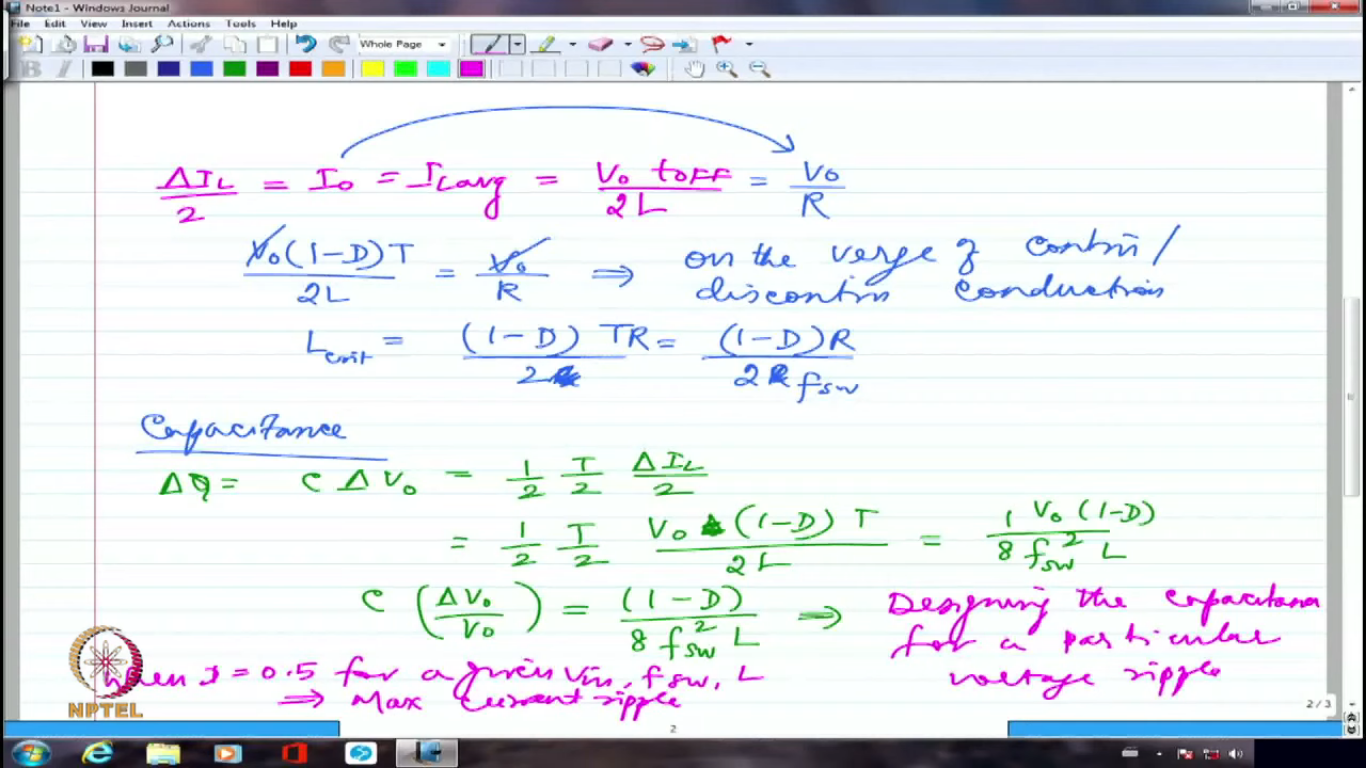 Note1 - Windows Journal
File Edit View Insert Actions Tools Help
Whole Page
ΔIL/2 = Io = ILavg = Vo tOFF/2L = Vo/R
Vo(1-D)T/2L = Vo/R ⇒ on the verge of contin/
discontin conduction
Lcrit = (1-D) TR/2 = (1-D)R/2 fsw
Capacitance
ΔQ = C ΔVo = 1/2 T/2 ΔIL/2
= 1/2 T/2 Vo (1-D) T/2L = 1 Vo (1-D)/8 fsw² L
C (ΔVo/Vo) = (1-D)/8 fsw² L ⇒ Designing the capacitance
for a particular
voltage ripple
when D = 0.5 for a given Vin, fsw, L
⇒ Max current ripple
NPTEL
2 / 3
2